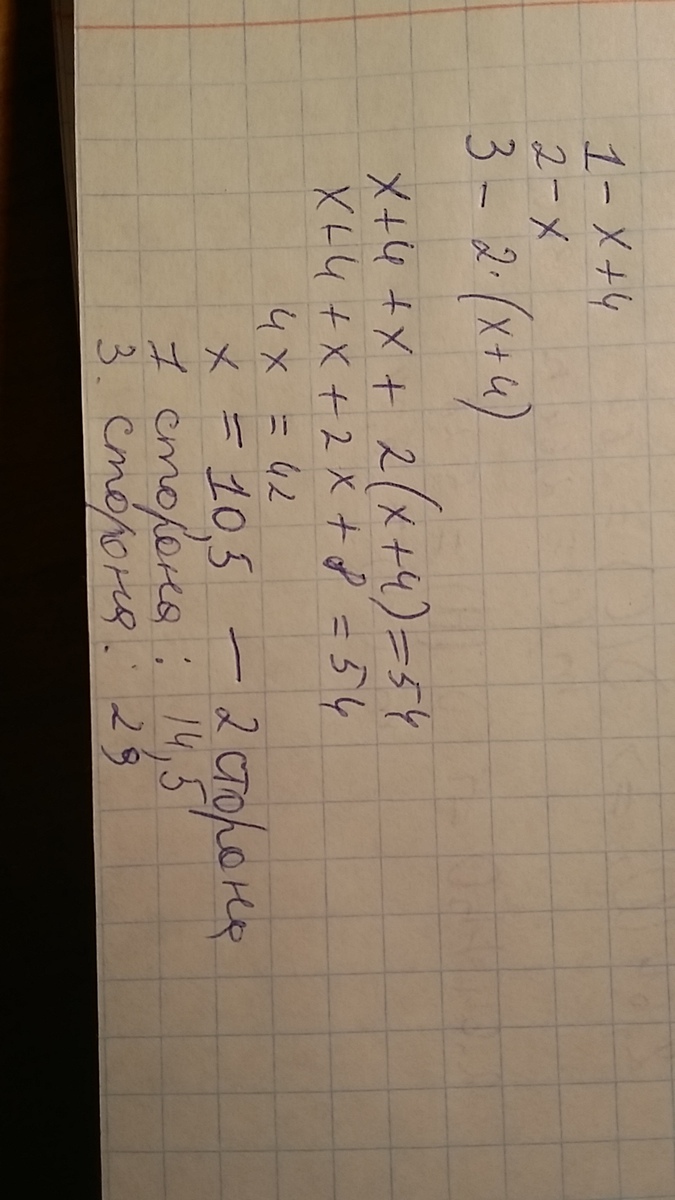 1 - x + 4
2 - x
3 - 2·(x+4)
x+4 + x + 2(x+4) = 54
x+4 + x + 2x + 8 = 54
4x = 42
x = 10,5 — 2 сторона
1 сторона: 14,5
3. сторона: 29